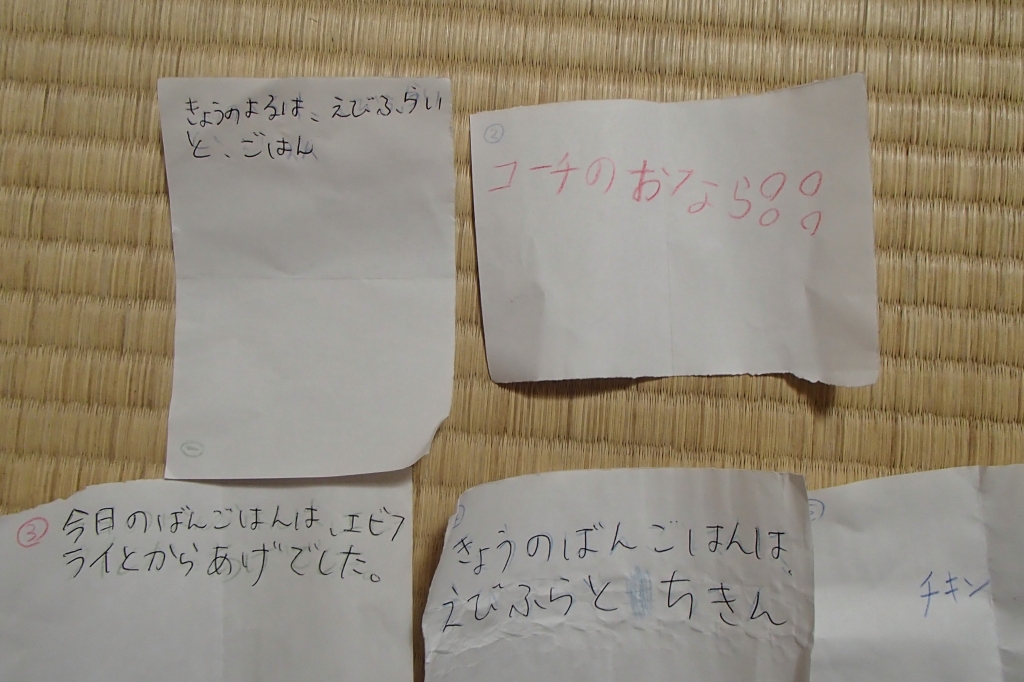 きょうのよるは、えびふらい
と、ごはん
②
コーチのおなら00
00
③
今日のばんごはんは、エビフ
ライとからあげでした。
きょうのばんごはんは、
えびふらと ちきん
チキン